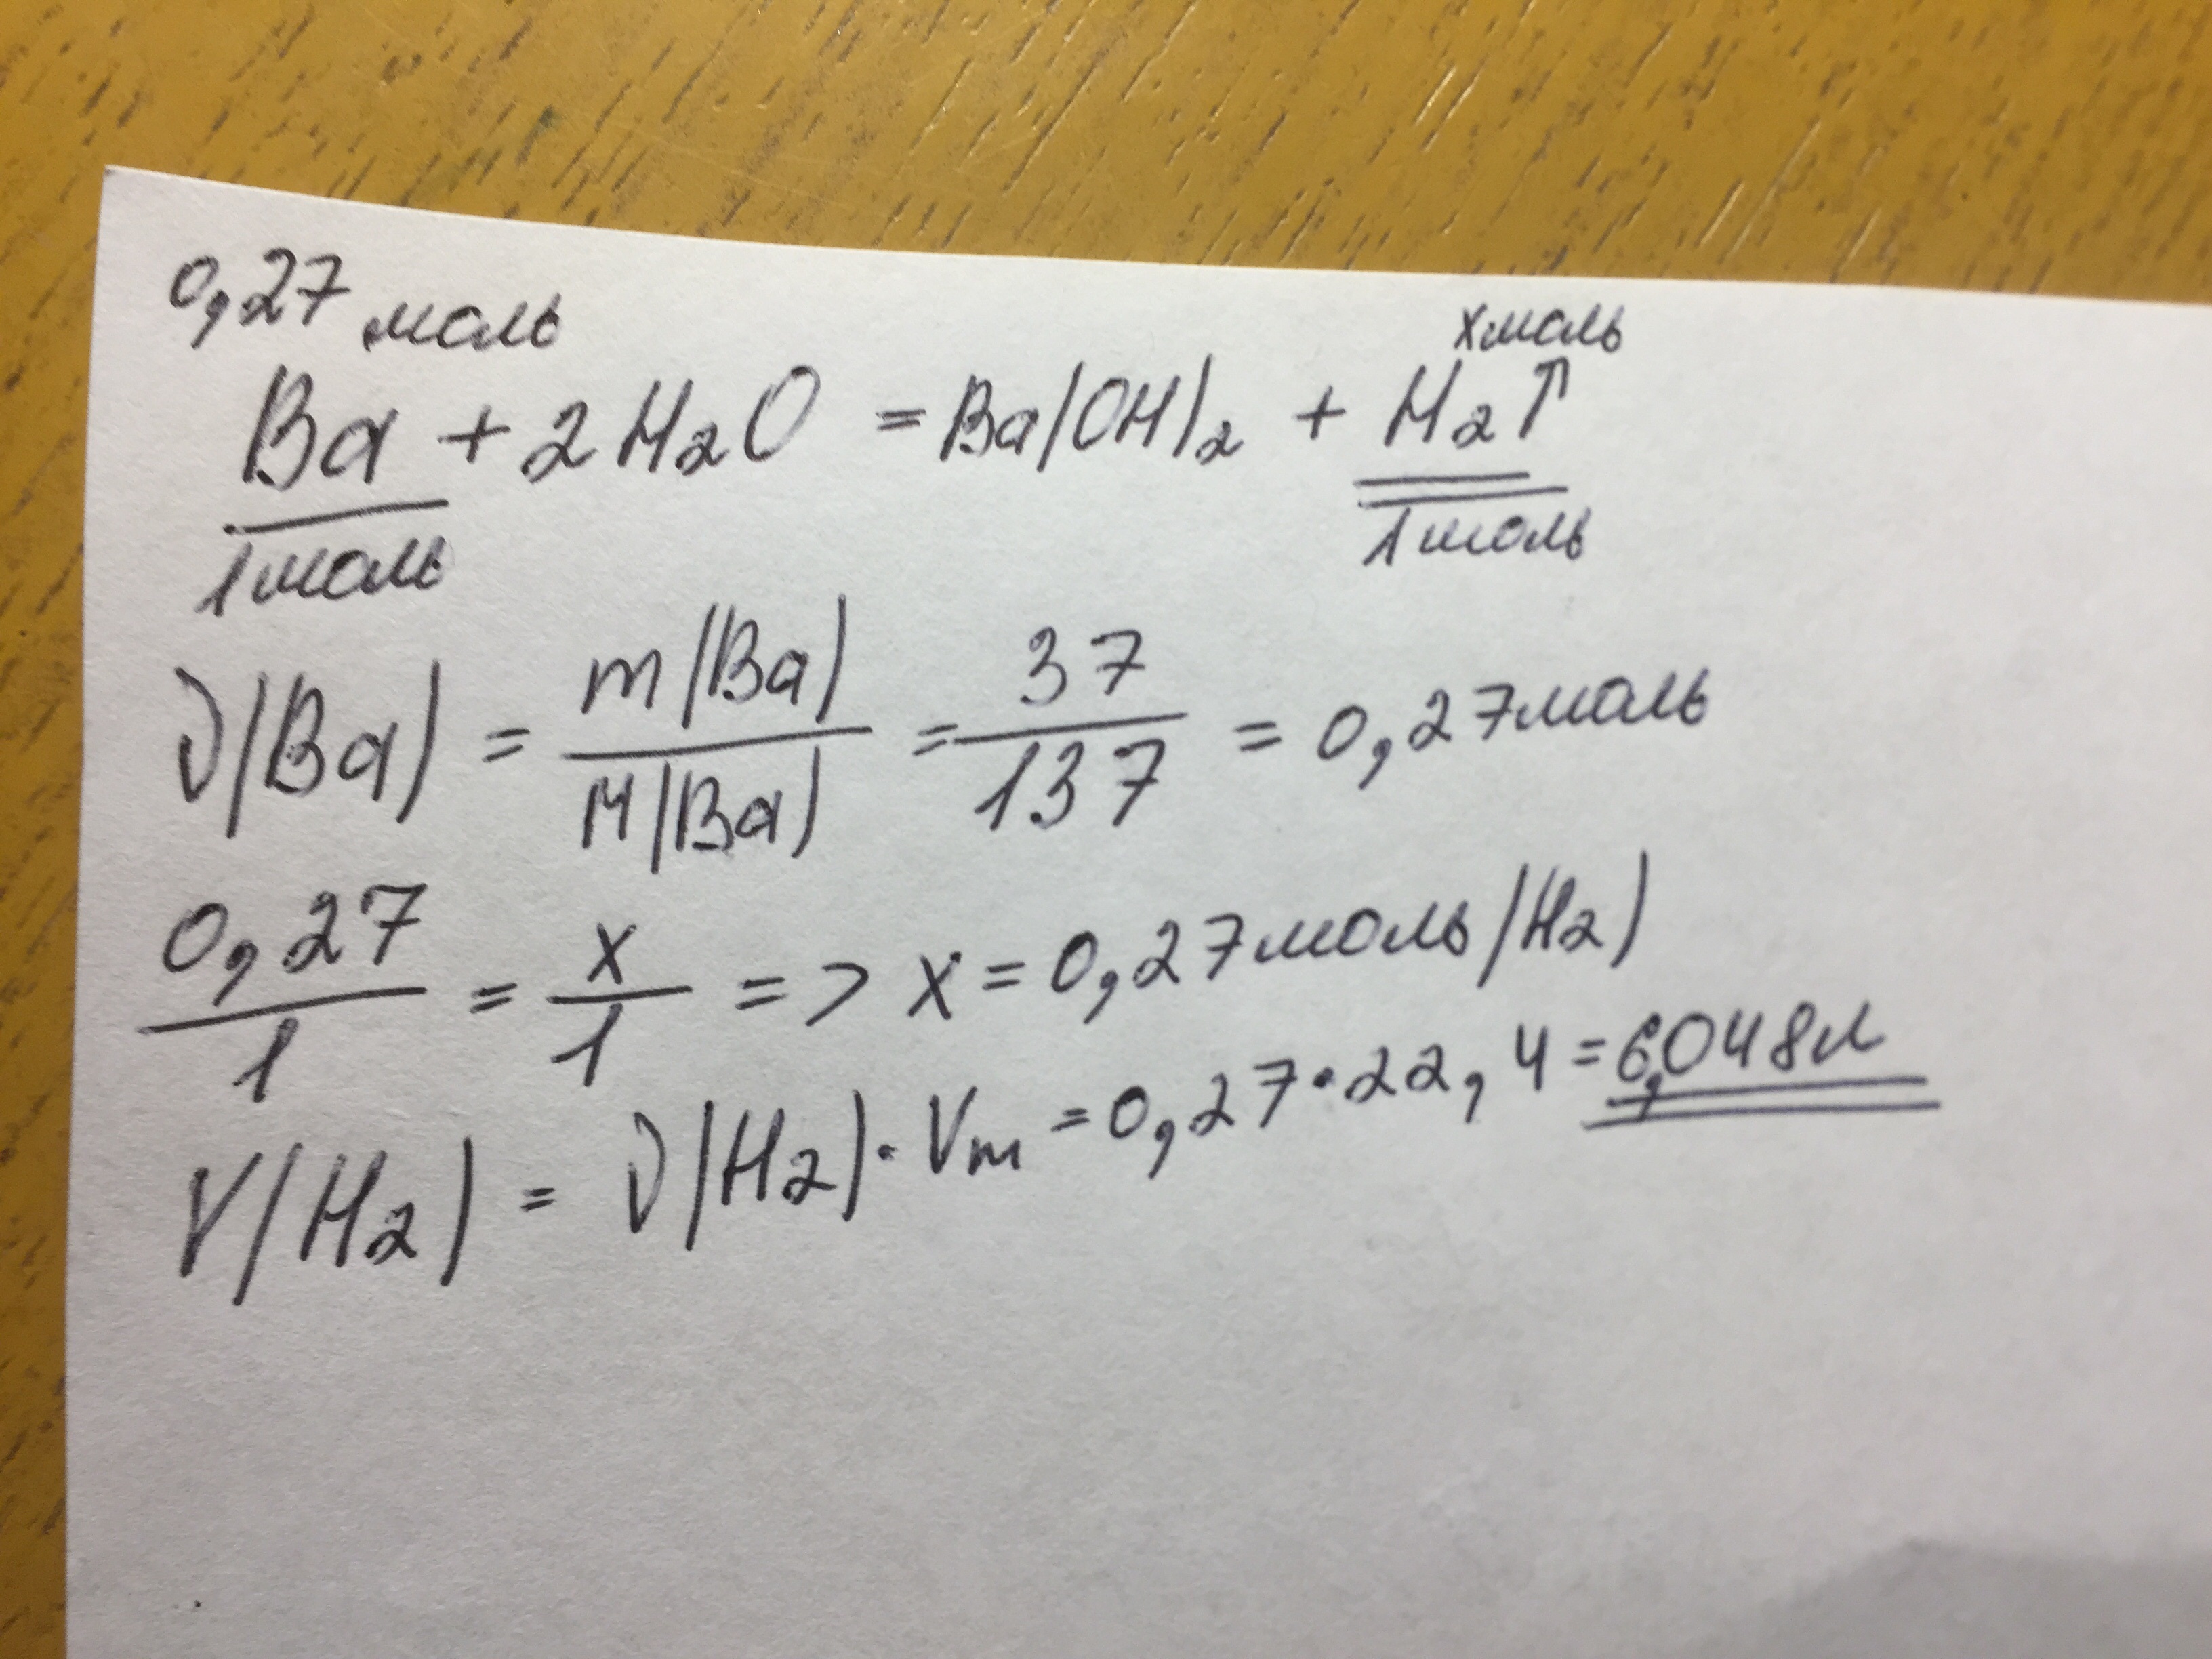 0,27 моль
х моль
Ba + 2H₂O = Ba(OH)₂ + H₂↑
1 моль 1 моль
ν(Ba) = m(Ba)/M(Ba) = 37/137 = 0,27 моль
0,27/1 = x/1 => x = 0,27 моль (H₂)
V(H₂) = ν(H₂)·Vm = 0,27·22,4 = 6,048 л